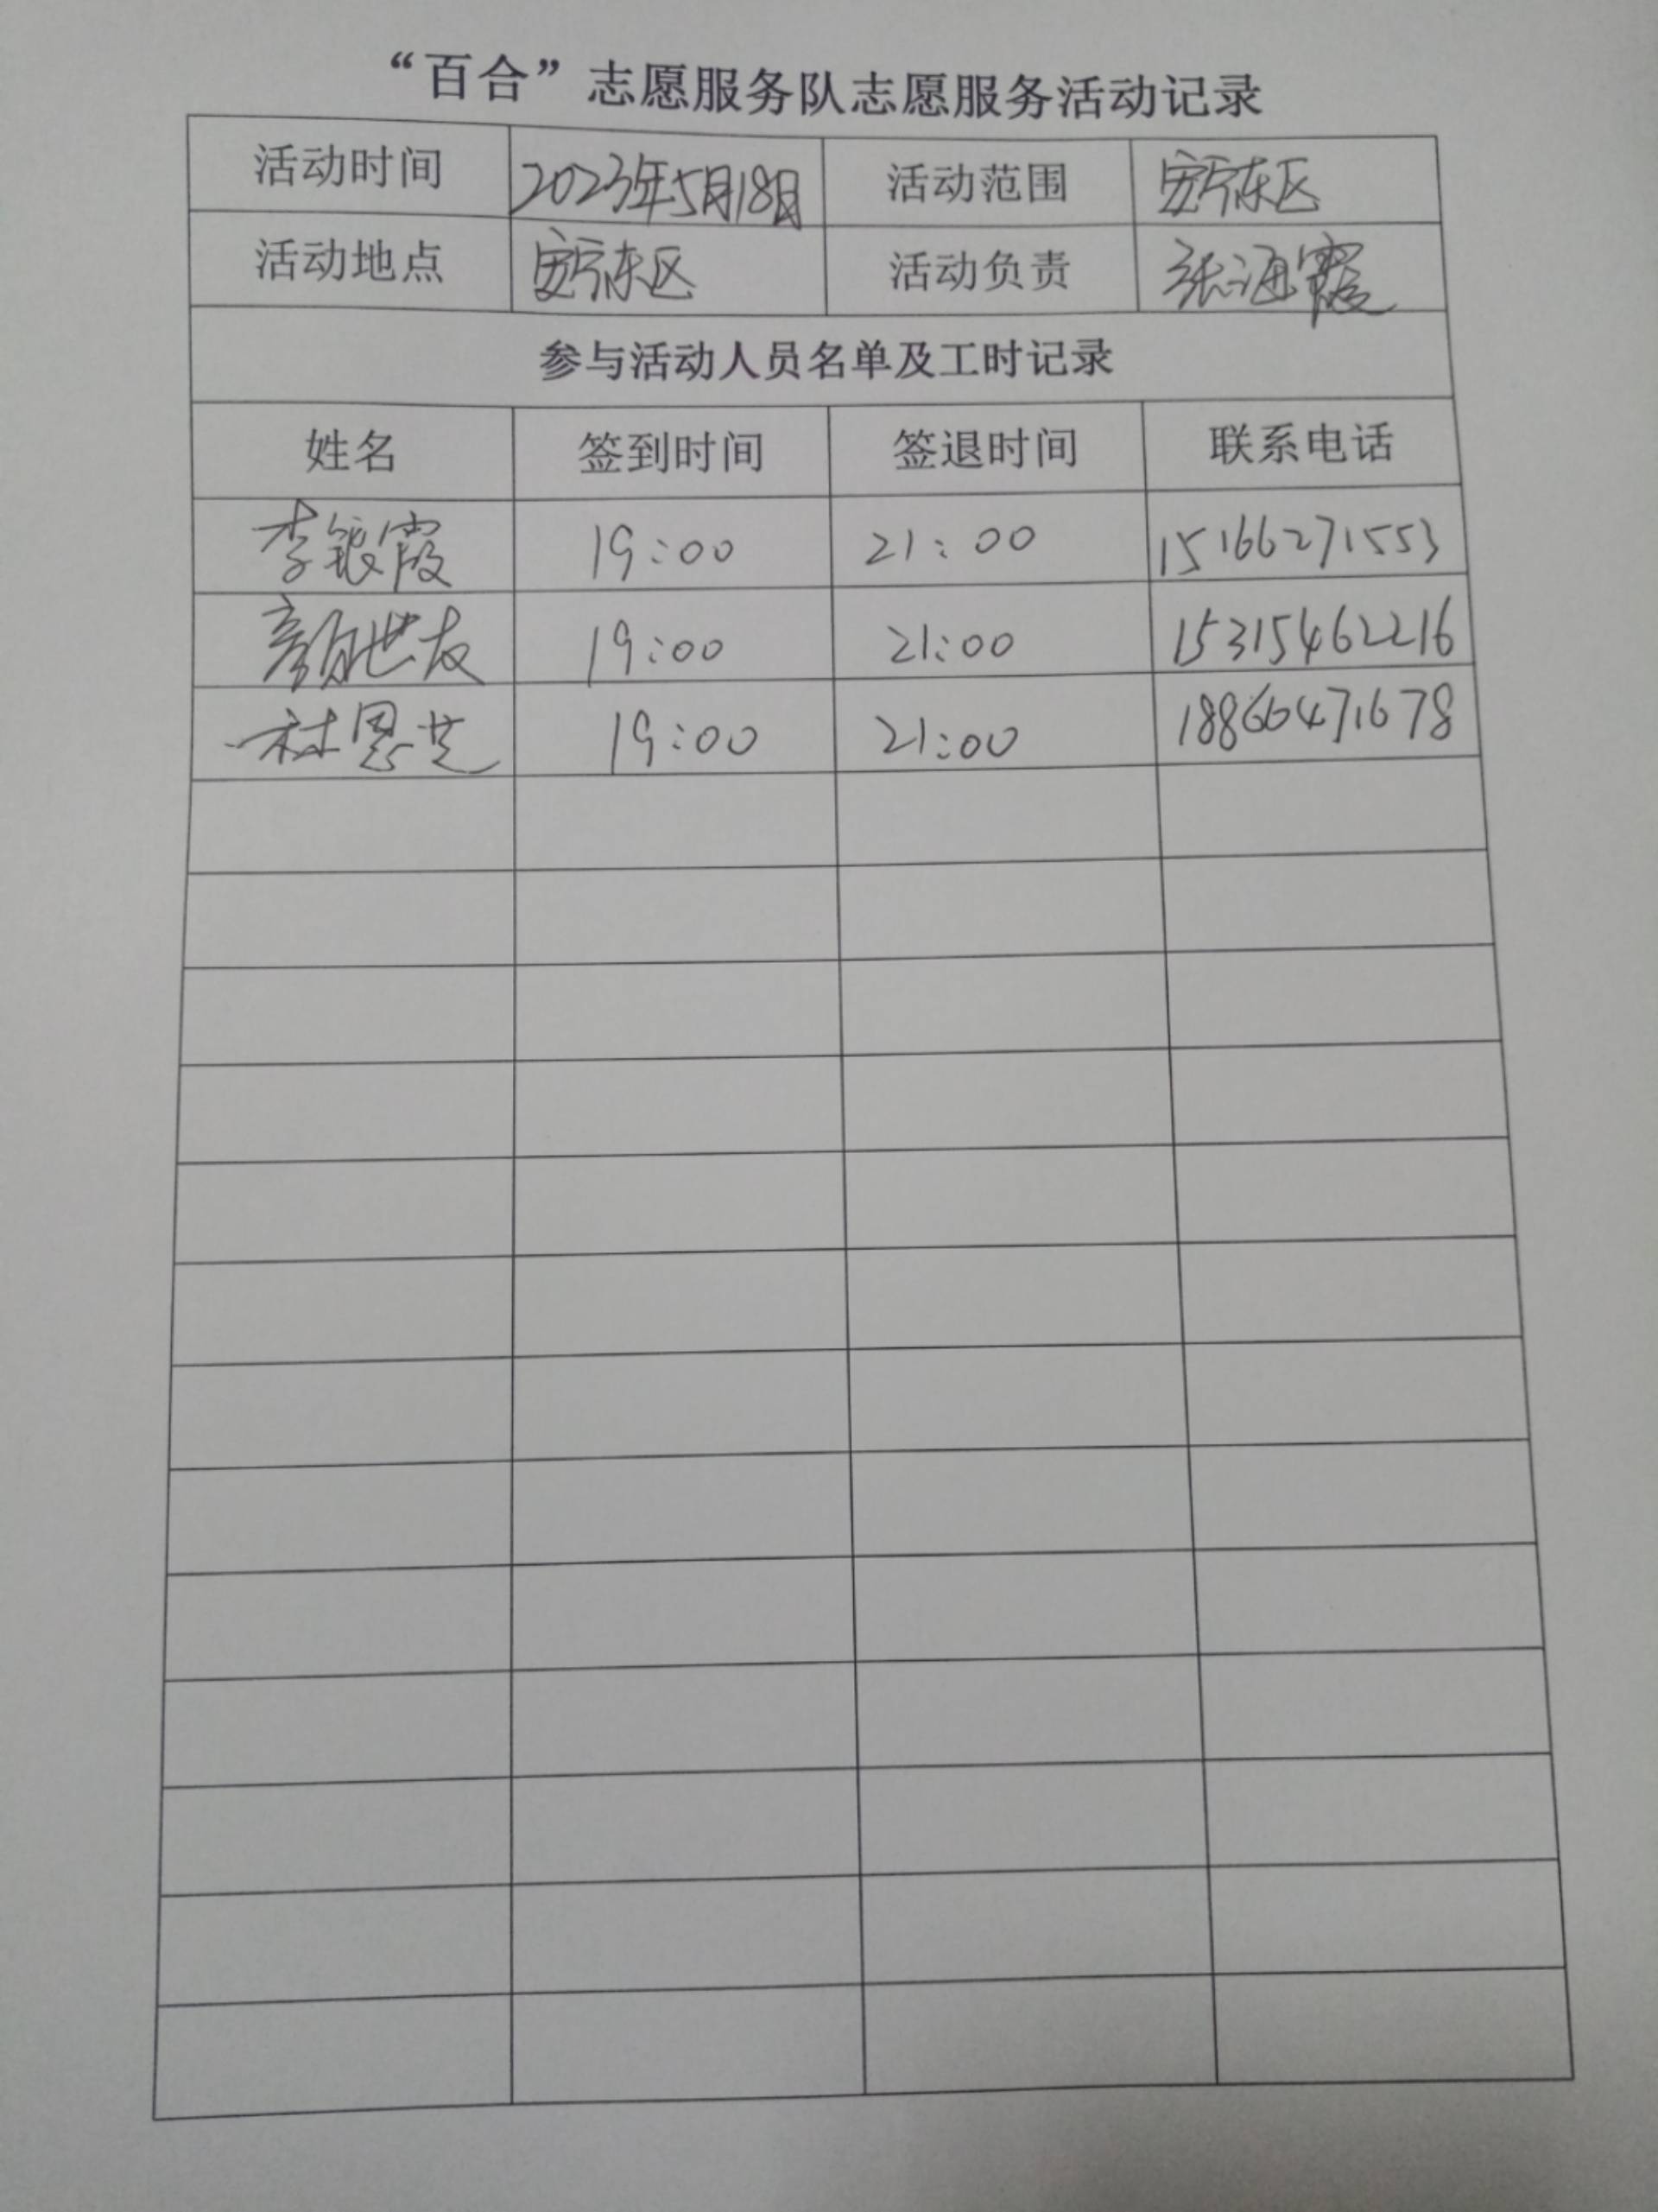 “百合”志愿服务队志愿服务活动记录
活动时间 2023年5月18日 活动范围 安宁东区
活动地点 安宁东区 活动负责 张海霞
参与活动人员名单及工时记录
姓名 签到时间 签退时间 联系电话
李银霞 19:00 21:00 15166271553
颜世友 19:00 21:00 15315462216
林恩芝 19:00 21:00 18866471678